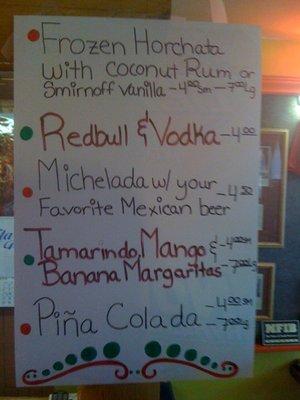 Frozen Horchata
with coconut Rum or
Smirnoff vanilla - 4⁰⁰sm - 7⁰⁰Lg
Redbull & Vodka - 4⁰⁰
Michelada w/ your - 4⁵⁰
Favorite Mexican beer
Tamarindo, Mango & - 4⁰⁰sm
Banana Margaritas - 7⁰⁰Lg
- 4⁰⁰sm
Piña Colada - 7⁰⁰Lg
NFIB